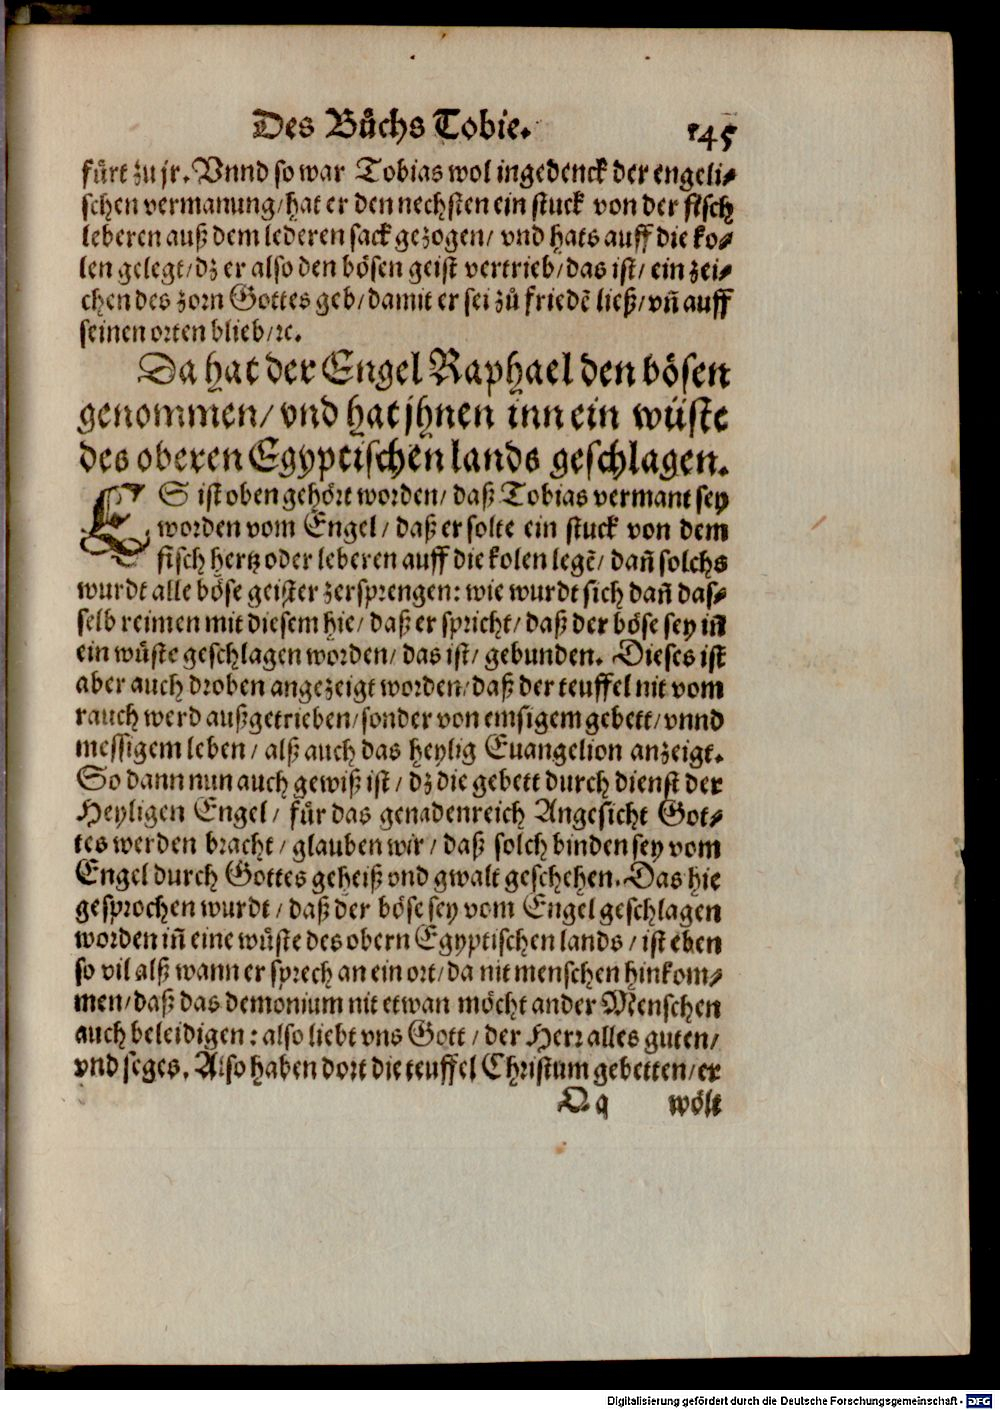 Des Bůchs Tobie. 145
fürt zu jr. Vnnd so war Tobias wol ingedenck der engeli⸗
schen vermanung/ hat er den nechsten ein stuck von der fisch
leberen auß dem lederen sack gezogen/ vnd hats auff die ko⸗
len gelegt/ dz er also den bösen geist vertrieb/ das ist/ ein zei⸗
chen des zorn Gottes geb/ damit er sei zů friedē ließ/ vñ auff
seinen orten blieb/ ꝛc.
Da hat der Engel Raphael den bösen
genommen/ vnd hat jhnen inn ein wüste
des oberen Egyptischen lands geschlagen.
ES ist oben gehört worden/ daß Tobias vermant sey
worden vom Engel/ daß er solte ein stuck von dem
fisch hertz oder leberen auff die kolen legē/ dañ solchs
wurdt alle böse geister zersprengen: wie wurdt sich dañ das⸗
selb reimen mit diesem hie/ daß er spricht/ daß der böse sey iñ
ein wüste geschlagen worden/ das ist/ gebunden. Dieses ist
aber auch droben angezeigt worden/ daß der teuffel nit vom
rauch werd außgetrieben/ sonder von emsigem gebett/ vnnd
messigem leben/ alß auch das heylig Euangelion anzeigt.
So dann nun auch gewiß ist/ dz die gebett durch dienst der
Heyligen Engel/ für das genadenreich Angesicht Got⸗
tes werden bracht/ glauben wir/ daß solch binden sey vom
Engel durch Gottes geheiß vnd gwalt geschehen. Das hie
gesprochen wurdt/ daß der böse sey vom Engel geschlagen
worden iñ eine wüste des obern Egyptischen lands/ ist eben
so vil alß wann er sprech an ein ort/ da nit menschen hinkom⸗
men/ daß das demonium nit etwan möcht ander Menschen
auch beleidigen: also liebt vns Gott/ der Herr alles guten/
vnd seges. Also haben dort die teuffel Christum gebetten/ er
Qq wölt
Digitalisierung gefördert durch die Deutsche Forschungsgemeinschaft - DFG